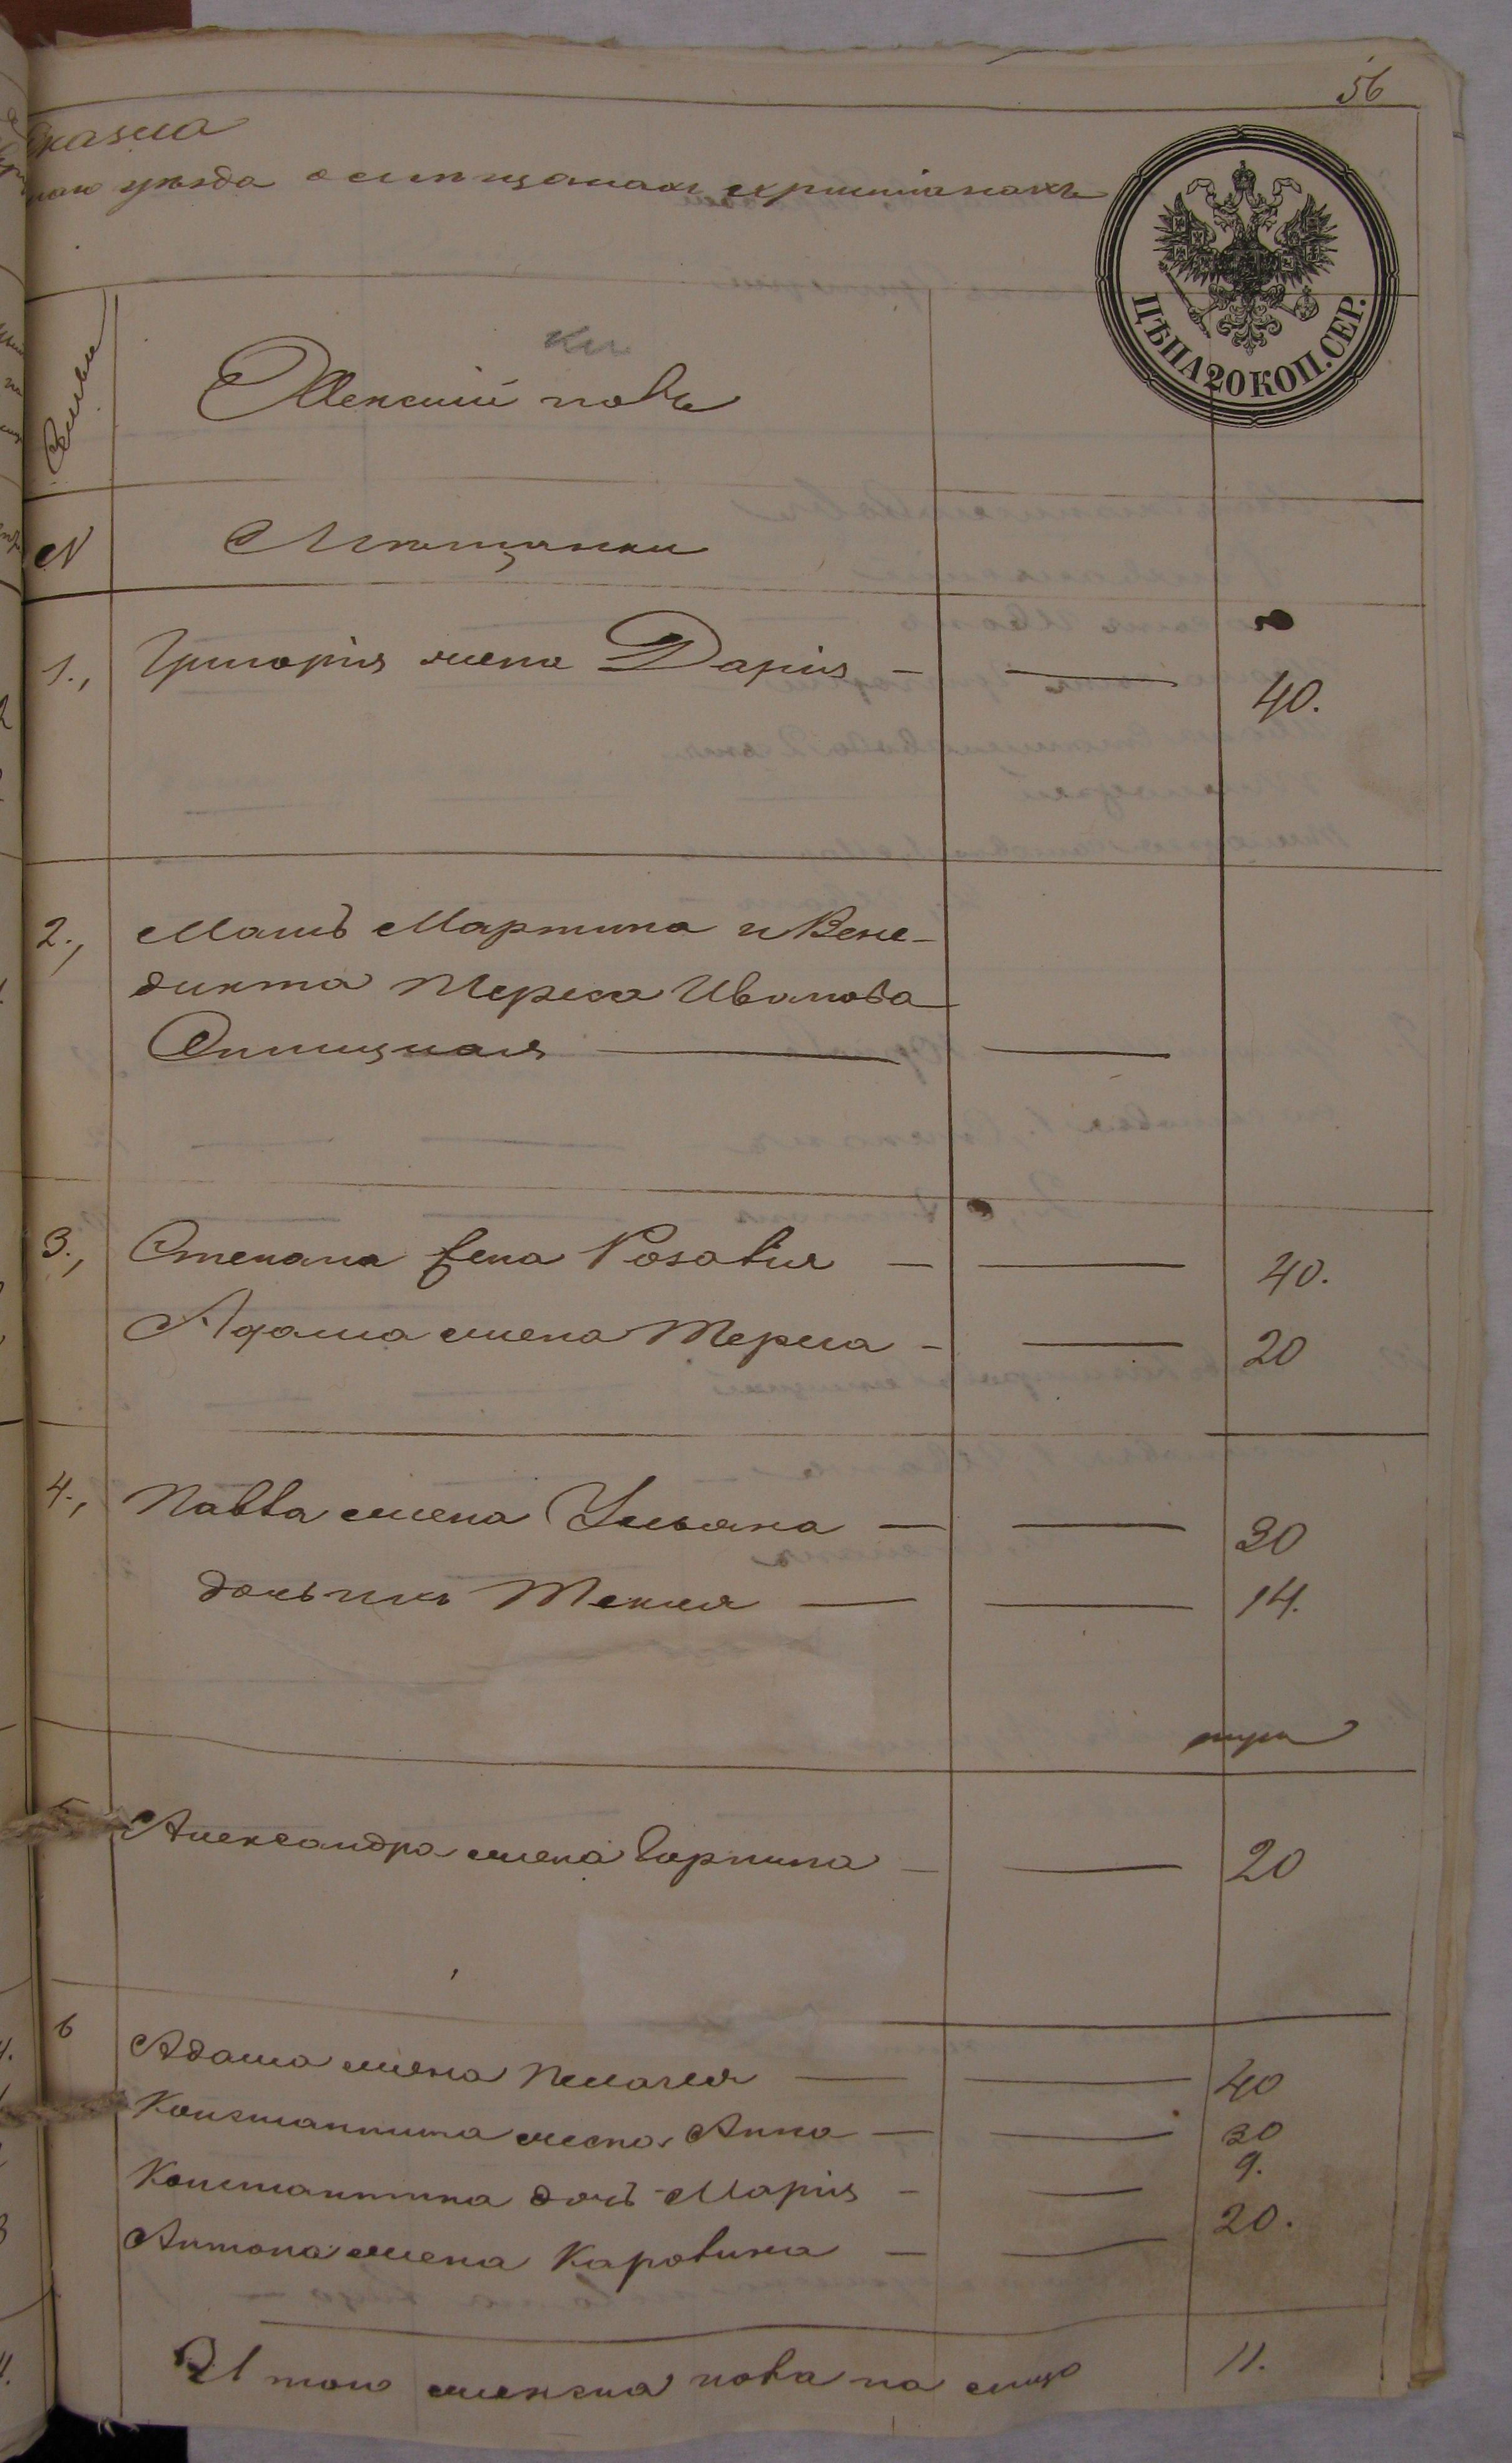 56
сказка
уезда о мещанахъ христіанахъ
ЦѢНА 20 КОП. СЕР.
Семьи
Женскій полъ
N
Мѣщанки
1., Григорія жена Дарія — — 40.
2., Мать Мартина и Вене-
дикта Тереса Иванова
3., Степана жена Розалія — — 40.
Адама жена Тереса — — 20
4., Павла жена Ульяна — — 30
дочь ихъ Текля — — 14.
5 Александра жена — — 20
6 Адама жена Пелагея — — 40
Константина жена Анна — — 30
Константина дочь Марія — — 9.
Антона жена Каролина — — 20.
Итого женска пола на лицо 11.